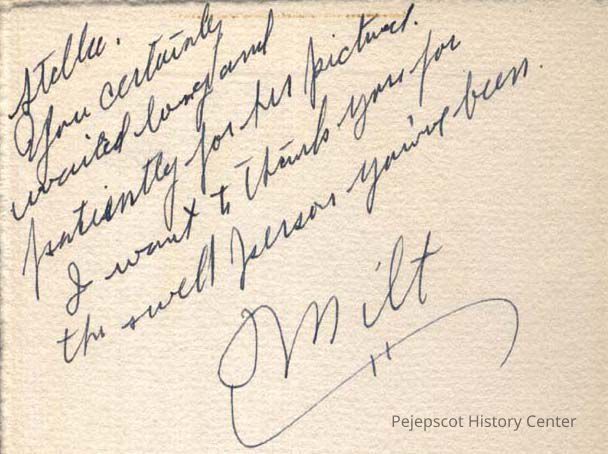 Stella.
You certainly
waited long and
patiently for this picture.
I want to thank you for
the swell person you've been.
Milt
Pejepscot History Center